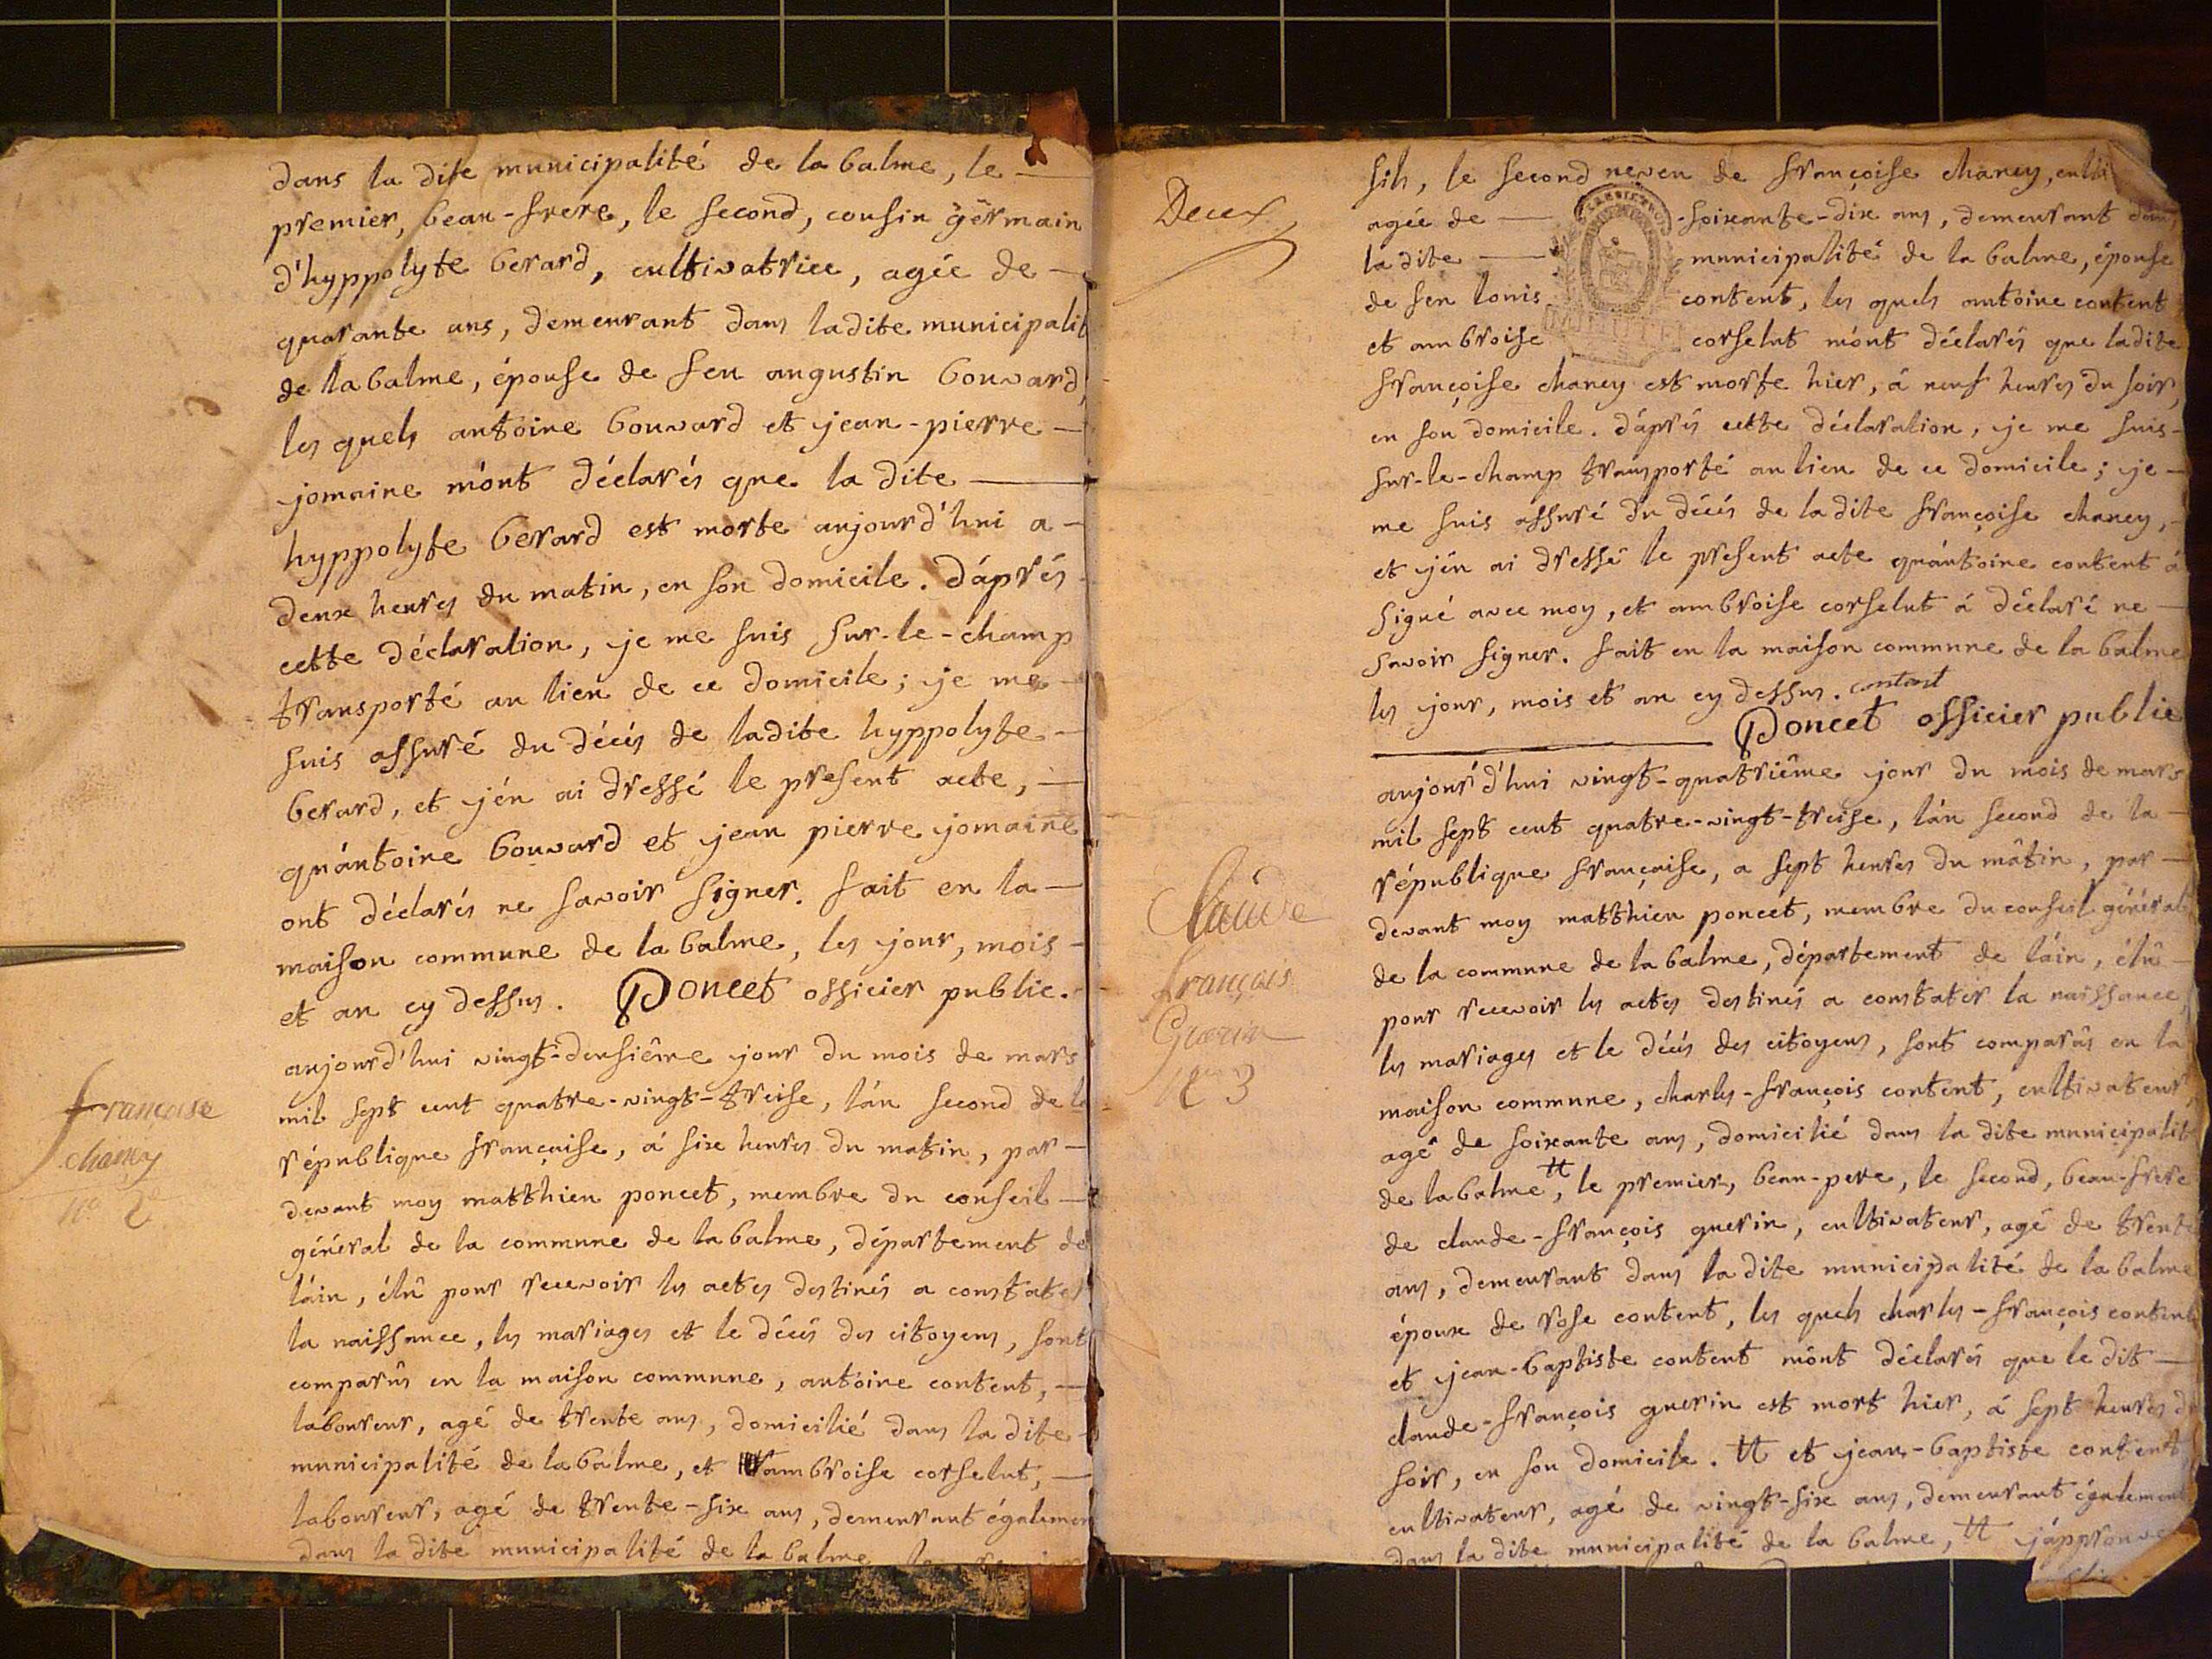 dans la dite municipalité de la balme, le
premier, beau-frere, le second, cousin germain
d'hyppolyte berard, cultivatrice, agée de
quarante ans, demeurant dans ladite municipalit
de la balme, épouse de feu augustin bouvard,
les quels antoine bouvard et jean-pierre
jomaine m'ont déclarés que la dite
hyppolyte berard est morte aujourd'hui a
deux heures du matin, en son domicile. d'aprés
cette déclaration, je me suis sur-le-champ
transporté au lieu de ce domicile; je me
suis assuré du décés de ladite hyppolyte
berard, et j'en ai dressé le present acte,
qu'antoine bouvard et jean pierre jomaine
ont déclarés ne savoir signer. fait en la
maison commune de la balme, les jour, mois
et an cy dessus. Poncet officier public.
françoise
chaney
N° 2
aujourd'hui vingt-deusiême jour du mois de mars
mil sept cent quatre-vingt-treise, l'an second de la
république française, á six heures du matin, par
devant moy matthieu poncet, membre du conseil
général de la commune de la balme, département de
l'ain, élû pour recevoir les actes destinés a constater
la naissance, les mariages et le décés des citoyens, sont
comparûs en la maison commune, antoine content,
laboureur, agé de trente ans, domicilié dans la dite
municipalité de la balme, et ambroise corselut,
laboureur, agé de trente-six ans, demeurant égalemen
dans la dite municipalité de la balme le
Deux
fils, le second neveu de françoise chaney, culti
agée de soixante-dix ans, demeurant dans
la dite municipalité de la balme, épouse
de feu louis content, les quels antoine content
et ambroise corselut m'ont déclarés que ladite
françoise chaney est morte hier, á neuf heures du soir,
en son domicile. d'aprés cette déclaration, je me suis
sur-le-champ transporté au lieu de ce domicile; je
me suis assuré du décés de la dite françoise chaney,
et j'en ai dressé le present acte qu'antoine content á
signé avec moy, et ambroise corselut á déclaré ne
savoir signer. fait en la maison commune de la balme
les jour, mois et an cy dessus. contant
Poncet officier public
Claude
françois
Guerin
N° 3
aujourd'hui vingt-quatriême jour du mois de mars
mil sept cent quatre-vingt-treise, l'an second de la
république française, a sept heures du mâtin, par
devant moy matthieu poncet, membre du conseil général
de la commune de la balme, département de l'ain, élû
pour recevoir les actes destinés a constater la naissance,
les mariages et le décés des citoyens, sont comparûs en la
maison commune, charles-françois content, cultivateur,
agé de soixante ans, domicilié dans la dite municipalité
de la balme, le premier, beau-pere, le second, beau-frere
de claude-françois guerin, cultivateur, agé de trente
ans, demeurant dans la dite municipalité de la balme
époux de rose content, les quels charles-françois content
et jean-baptiste content m'ont déclarés que le dit
claude-françois guerin est mort hier, á sept heures du
soir, en son domicile. et jean-baptiste content
cultivateur, agé de vingt-six ans, demeurant également
dans la dite municipalité de la balme, j'approuve